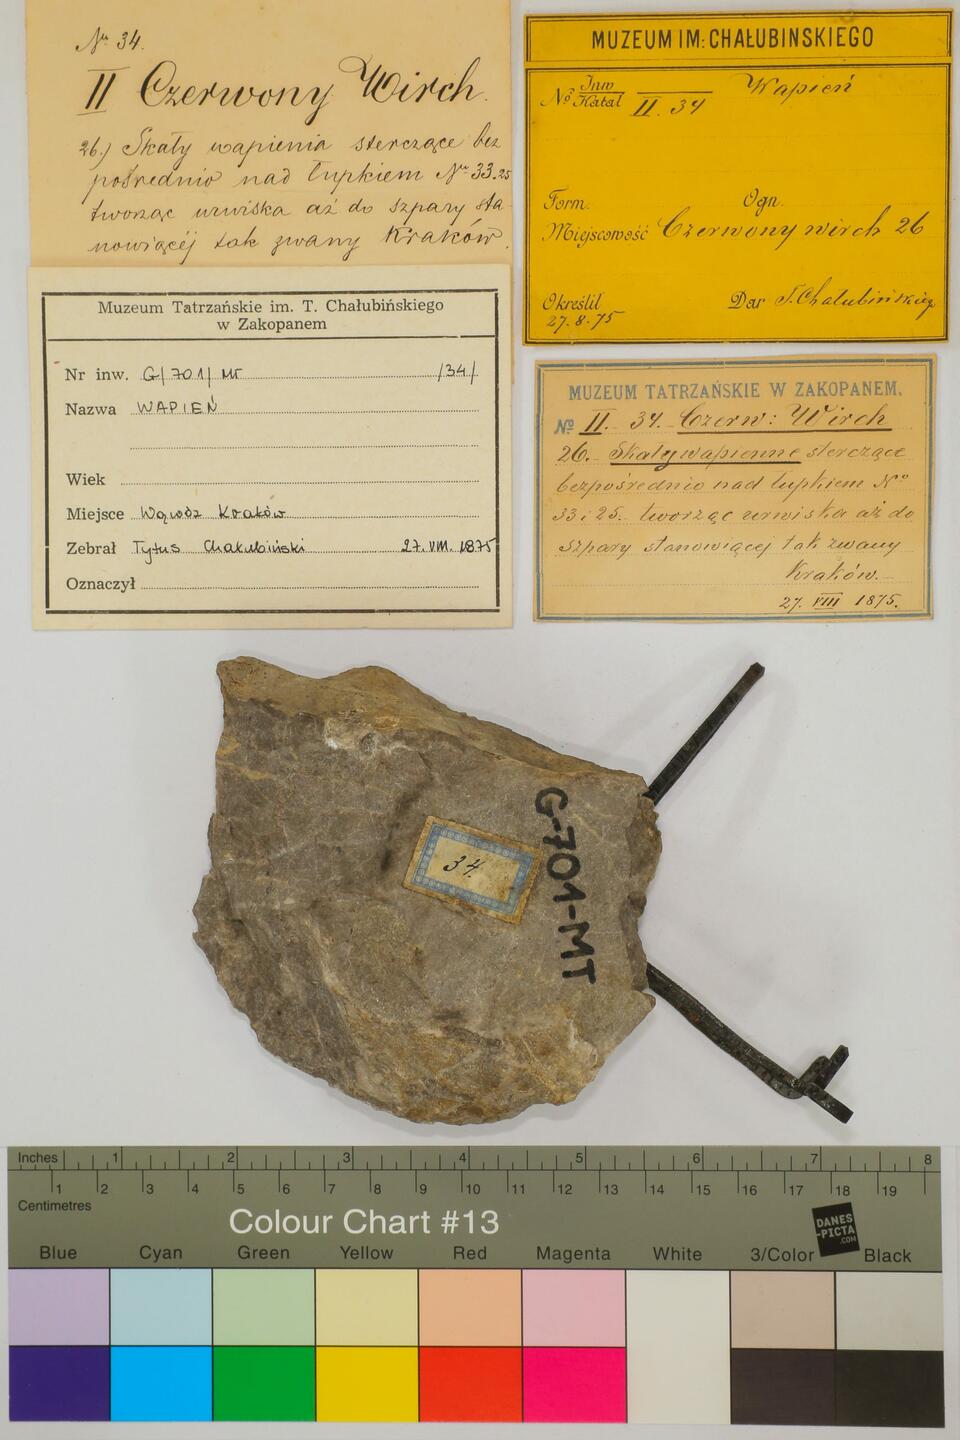 Nr 34.
II Czerwony Wirch.
26.) Skały wapienia sterczące bez
pośrednio nad łupkiem Nr 33.25
tworząc urwiska aż do szpary sta-
nowiącéj tak zwany Kraków.
MUZEUM IM: CHAŁUBINSKIEGO
No Inw Katal II. 34 Wapień
Form. Ogn.
Miejscowość Czerwony wirch 26
Określił Dar T. Chałubińskieg
27.8.75
Muzeum Tatrzańskie im. T. Chałubińskiego
w Zakopanem
Nr inw. G/701/MT /34/
Nazwa WAPIEŃ
Wiek
Miejsce Wąwóz Kraków
Zebrał Tytus Chałubiński 27.VIII.1875
Oznaczył
MUZEUM TATRZAŃSKIE W ZAKOPANEM.
No II. 34. Czerw: Wirch
26. Skały wapienne sterczące
bezpośrednio nad łupkiem No
33 i 25. tworząc urwiska aż do
szpary stanowiącej tak zwany
Kraków.
27. VIII 1875.
34.
G-701-MT
Inches 1 2 3 4 5 6 7 8
1 2 3 4 5 6 7 8 9 10 11 12 13 14 15 16 17 18 19
Centimetres
Colour Chart #13
DANES
-PICTA
.COM
Blue Cyan Green Yellow Red Magenta White 3/Color Black